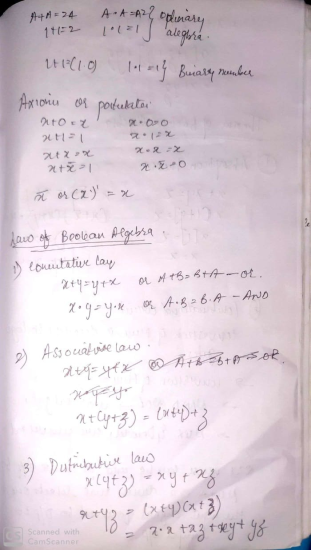 A+A=2A   A·A=A2 } Ordinary
1+1=2   1·1=1 } algebra.
1+1=(1 0)   1·1=1} Binary number
Axioms or postulates
x+0=x   x·0=0
x+1=1   x·1=x
x+x=x   x·x=x
x+x̄=1   x·x̄=0
or (x̄)' = x
Laws of Boolean Algebra
1) Comutative law
x+y=y+x or A+B=B+A — OR.
x·y=y·x or A·B=B·A — AND
2) Associative law.
x+y=y+x or A+B=B+A = OR.
x+(y+z) = (x+y)+z
3) Distributive law
x(y+z) = xy + xz
x+yz = (x+y)(x+z)
= x·x+xz+xy+yz
Scanned with
CamScanner